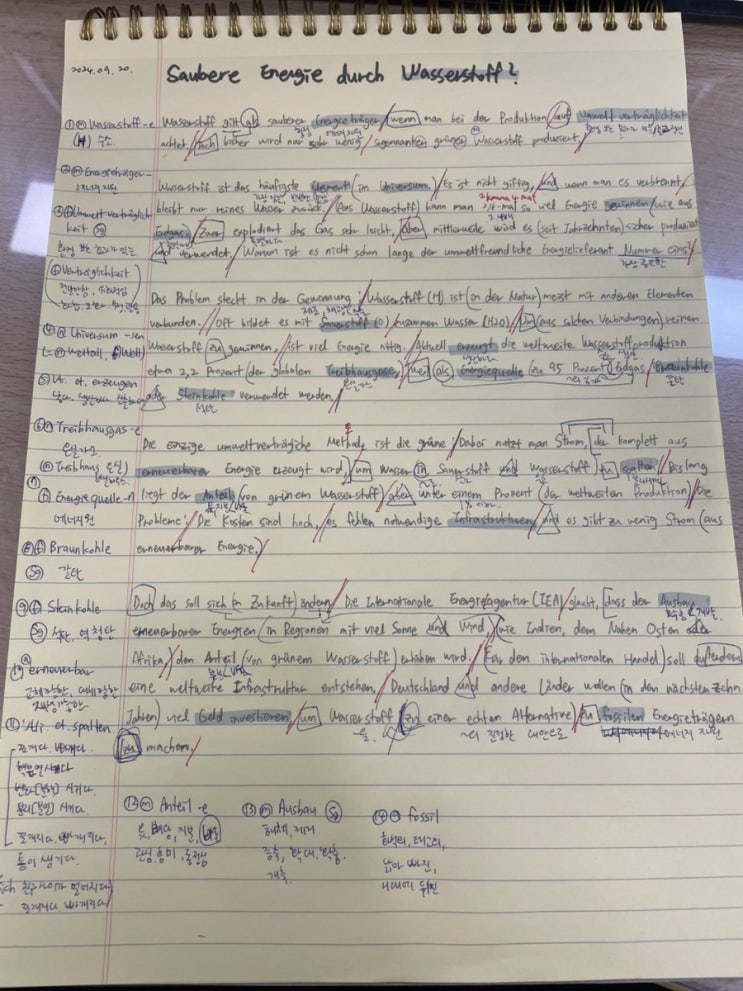 2024.09.20.
Saubere Energie durch Wasserstoff?
① ⓜ Wasserstoff -e
수소
Wasserstoff gilt als sauberer Energieträger, wenn man bei der Produktion auf Umweltverträglichkeit
achtet, Doch bisher wird nur sehr wenig sogenannter grüner Wasserstoff produziert.
② ⓜ Energieträger -
에너지 자원
Wasserstoff ist das häufigste Element (im Universum). Es ist nicht giftig, und wenn man es verbrennt,
2 komma 4 mal
bleibt nur reines Wasser zurück. (Aus Wasserstoff) kann man 2,4-mal so viel Energie gewinnen wie aus
③ ⓕ Umweltverträglich
keit Sg
Erdgas. Zwar explodiert das Gas sehr leicht, Aber mittlerweile wird es (seit Jahrzehnten) sicher produziert
und verwendet. Warum ist es nicht schon lange der umweltfreundliche Energielieferant Nummer eins?
가장 중요한
ⓕ Verträglichkeit
Das Problem steckt in der Gewinnung: Wasserstoff (H) ist (in der Natur) meist mit anderen Elementen
verbunden. Oft bildet es mit Sauerstoff (O) zusammen Wasser (H2O). Um (aus solchen Verbindungen) reinen
④ ⓝ Universum -sen
(= ⓝ Weltall, ⓕ Welt)
Wasserstoff zu gewinnen, ist viel Energie nötig. Aktuell erzeugt die weltweite Wasserstoffproduktion
etwa 2,2 Prozent (der globalen Treibhausgase), weil (als Energiequelle (zu 95 Prozent) Erdgas, Braunkohle
⑤ Vt. et. erzeugen
oder Steinkohle verwendet werden.
온실가스
갈탄
석탄
⑥ ⓝ Treibhausgas -e
온실가스
Die einzige umweltverträgliche Methode ist die grüne: Dabei nutzt man Strom, der komplett aus
ⓝ Treibhaus 온실
erneuerbarer Energie erzeugt wird, um Wasser in Sauerstoff und Wasserstoff zu spalten. Bislang
⑦ ⓕ Energiequelle -n
에너지원
liegt der Anteil (von grünem Wasserstoff) aber unter einem Prozent (der weltweiten Produktion). Die
Probleme: Die Kosten sind hoch, es fehlen notwendige Infrastrukturen, und es gibt zu wenig Strom (aus
⑧ ⓕ Braunkohle
Sg 갈탄
erneuerbarer Energie).
⑨ ⓕ Steinkohle
Sg 석탄, 역청탄
Doch das soll sich (in Zukunft) ändern. Die Internationale Energieagentur (IEA) glaubt, dass der Ausbau
erneuerbarer Energien (in Regionen mit viel Sonne und Wind), wie Indien, dem Nahen Osten oder
⑩ ⓐ erneuerbar
Afrika, den Anteil (von grünem Wasserstoff) erhöhen wird. (Für den internationalen Handel) soll außerdem
재생가능한
eine weltweite Infrastruktur entstehen. Deutschland und andere Länder wollen (in den nächsten zehn
⑪ et. spalten
Jahren) viel Geld investieren, um Wasserstoff (zu einer echten Alternative) zu fossilen Energieträgern
~의 진정한 대안으로
에너지 자원
zu machen.
쪼개다, 빠개다.
핵분열시키다
쪼개지다, 빠개지다.
틈이 생기다.
쪼개지다, 빠개지다
⑫ ⓜ Anteil -e
몫, 배당, 지분, 비율
관심, 흥미, 동정심
⑬ ⓜ Ausbau Sg
해체, 제거
증축, 확대, 확충.
개축.
⑭ ⓐ fossil
화석의, 태고의,
낡아 빠진,
시대에 뒤진